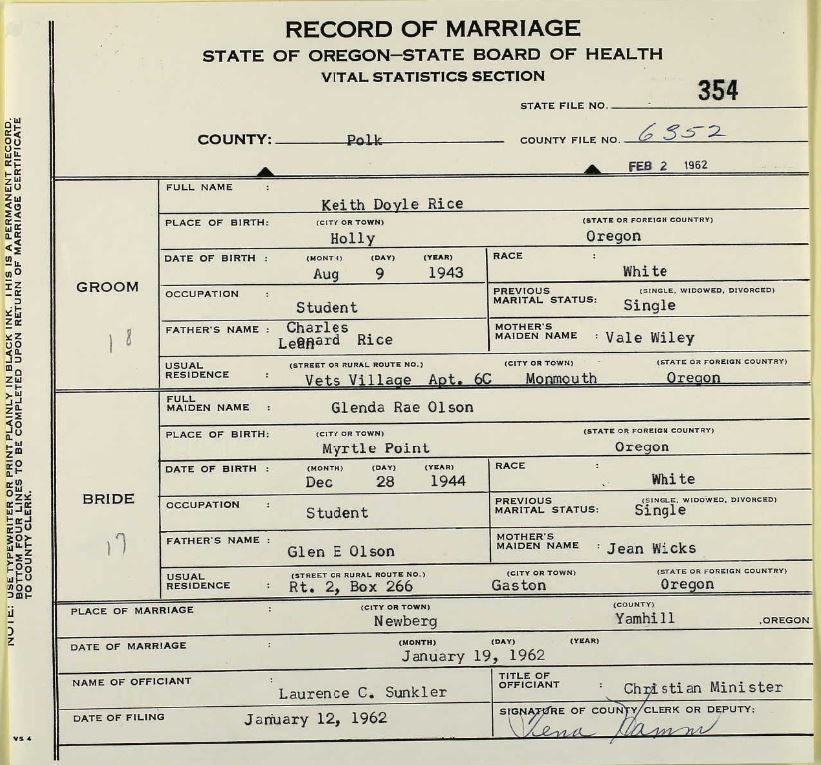 RECORD OF MARRIAGE
STATE OF OREGON—STATE BOARD OF HEALTH
VITAL STATISTICS SECTION
STATE FILE NO. 354
COUNTY: Polk COUNTY FILE NO. 6352
FEB 2 1962
NOTE: USE TYPEWRITER OR PRINT PLAINLY IN BLACK INK. THIS IS A PERMANENT RECORD.
BOTTOM FOUR LINES TO BE COMPLETED UPON RETURN OF MARRIAGE CERTIFICATE
TO COUNTY CLERK.
GROOM
18
FULL NAME :
Keith Doyle Rice
PLACE OF BIRTH: (CITY OR TOWN) (STATE OR FOREIGN COUNTRY)
Holly Oregon
DATE OF BIRTH : (MONTH) (DAY) (YEAR) RACE :
Aug 9 1943 White
OCCUPATION : PREVIOUS (SINGLE, WIDOWED, DIVORCED)
Student MARITAL STATUS: Single
FATHER'S NAME : Charles MOTHER'S
Leonard Rice MAIDEN NAME : Vale Wiley
USUAL (STREET OR RURAL ROUTE NO.) (CITY OR TOWN) (STATE OR FOREIGN COUNTRY)
RESIDENCE : Vets Village Apt. 6C Monmouth Oregon
BRIDE
17
FULL
MAIDEN NAME : Glenda Rae Olson
PLACE OF BIRTH: (CITY OR TOWN) (STATE OR FOREIGN COUNTRY)
Myrtle Point Oregon
DATE OF BIRTH : (MONTH) (DAY) (YEAR) RACE :
Dec 28 1944 White
OCCUPATION : PREVIOUS (SINGLE, WIDOWED, DIVORCED)
Student MARITAL STATUS: Single
FATHER'S NAME : MOTHER'S
Glen E Olson MAIDEN NAME : Jean Wicks
USUAL (STREET OR RURAL ROUTE NO.) (CITY OR TOWN) (STATE OR FOREIGN COUNTRY)
RESIDENCE : Rt. 2, Box 266 Gaston Oregon
PLACE OF MARRIAGE : (CITY OR TOWN) (COUNTY)
Newberg Yamhill , OREGON
DATE OF MARRIAGE : (MONTH) (DAY) (YEAR)
January 19, 1962
NAME OF OFFICIANT : TITLE OF
Laurence C. Sunkler OFFICIANT : Christian Minister
DATE OF FILING January 12, 1962 SIGNATURE OF COUNTY CLERK OR DEPUTY:
VS 4